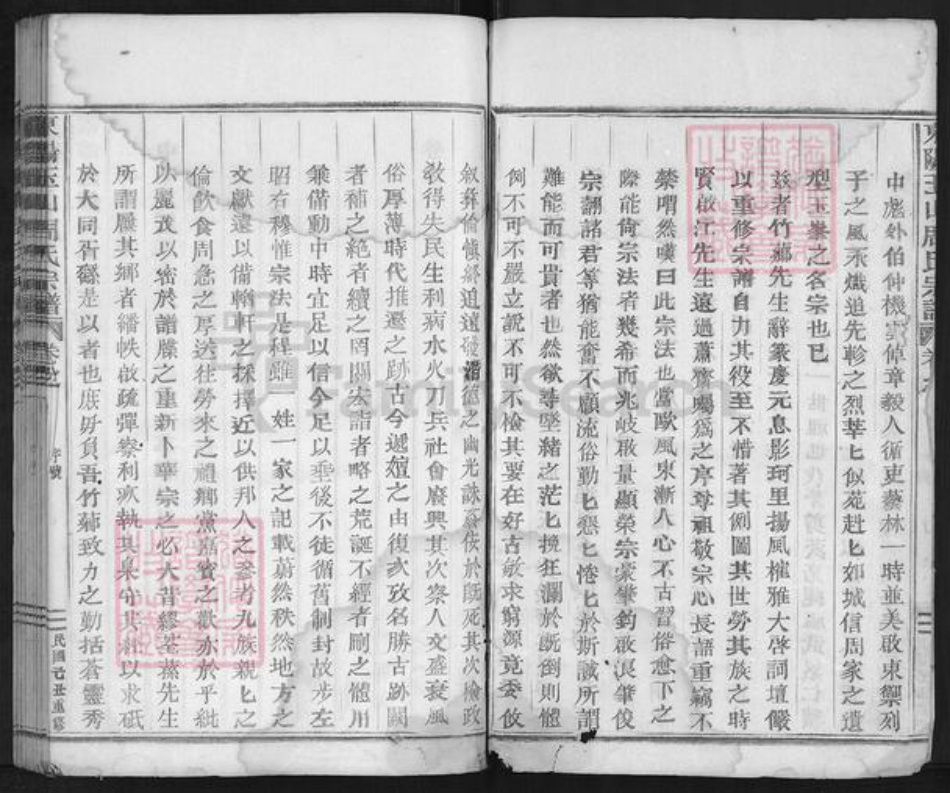 東陽玉山周氏宗譜
中彪外伯仲機雲倬章毅人循吏藝林一時並美啟東禦列
子之風禾熾追先軫之烈莘匕似苑赳匕如城信周家之遺
型玉峯之名宗也已
茲者竹薌先生辭篆慶元息影珂里揚風榷雅大啓詞壇儼
以重修宗譜自力其役至不惜著其例圖其世勞其族之時
賢啟江先生遠過蕭齋囑爲之序尊祖敬宗心長語重竊不
禁喟然嘆曰此宗法也當歐風東漸人心不古習俗愈下之
際能倚宗法者幾希而兆岐啟量顯榮宗蒙肇鈞啟浪肇俊
宗翻諸君等猶能奮不顧流俗勤匕懇匕惓匕於斯誠所謂
難能而可貴者也然欲尋墜緒之茫匕挽狂瀾於既倒則體
例不可不嚴立說不可不檢其要在好古敏求窮源竟委攸
敘彝倫愼終追遠發潛德之幽光誅奸佞於既死其次檢政
敎得失民生利病水火刀兵社會廢興其次察人文盛衰風
俗厚薄時代推遷之跡古今遞嬗之由復攷名勝古跡闕
者補之絶者續之罔關宏詣者略之荒誕不經者刪之體用
兼備動中時宜足以信今足以垂後不徒循舊制封故步左
昭右穆惟宗法是程雖一姓一家之記載蔚然秩然地方之
文獻遠以備輶軒之採擇近以供邦人之參考九族親匕之
倫飲食周急之厚送往勞來之禮鄉黨嘉賓之歡亦於乎紕
以麗戎以密於譜牒之重新卜華宗之必大昔繆荃蓀先生
所謂展其鄉者繙帙啟疏彈察利病執其臬守其樸以求砥
於大同胥繇是以者也庶毋負吾竹薌致力之勤括蒼靈秀
東陽玉山周氏宗譜
卷之一
序號
民國乙丑重修